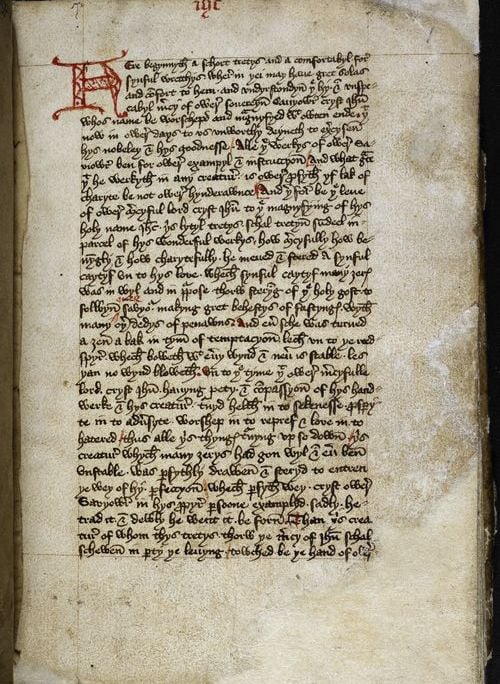 ihc
Here begynnyth a schort tretys and a comfortabyl for
synful wrecchys. wher in þei may haue gret solas
and cōfort to hem. and vndyrstondyn þe hy & vnspe-
cabyl mercy of ower souereyn Sauyowr cryst Ihū
whos name be worschepd and magnyfyed wt owten ende. þt
now in ower days to vs vnworthy deyneth to exercysen
hys nobeley & hys goodnesse. Alle þe werkys of ower Sa-
viowr ben for ower exampyl & instruccyon and what grace
þt he werkyth in any creatur. is ower profyth yf lak of
charyte be not ower hynderawnce. And þerfor be þe leue
of ower mercyful lord cryst Ihū to þe magnyfying of hys
holy name Ihū. þis lytyl tretys schal tretyn sūdeel in
parcel of hys wonderful werkys. how mercyfully how be-
nyngly & how charytefully. he meued & stered a synful
caytyf vn to hys love. whech synful caytyf many ȝerys
was in wyl and in purpose thorw steryng of þe holy gost. to
folwyn Savyowr. making gret behestys of fastyngys. wyth
many oþer dedys of penawns. And euer sche was turned
a ȝen a bak in tym of temptacyon. lech vn to þe reed
spyr. whech boweth wt euery wynd & neuer is stable. les
þan no wynd bloweth. vn to þe tyme þt ower mercyfulle
lord. cryst Ihū hauyng pety. & compassyon of hys hand-
werke & hys creatur. turnyd helth in to sekenesse prospy-
te in to aduersyte. worshep in to repref & love in to
hatered. thus alle þis thyngys turnyng vp so down. þis
creatur whych many ȝerys had gon wyl & euer ben
vnstable. was parfythly drawen & steryd to entren
þe wey of hy perfeccyon. whech parfyth wey. cryst ower
Savyowr in hys propyr persone examplyd. sadly he
trad it & dewly he went it be forn. Than þis crea
tur of whom thys tretys. thorw þe mercy of Ihū schal
schewen in party þe leuyng. towched be þe hand of ower